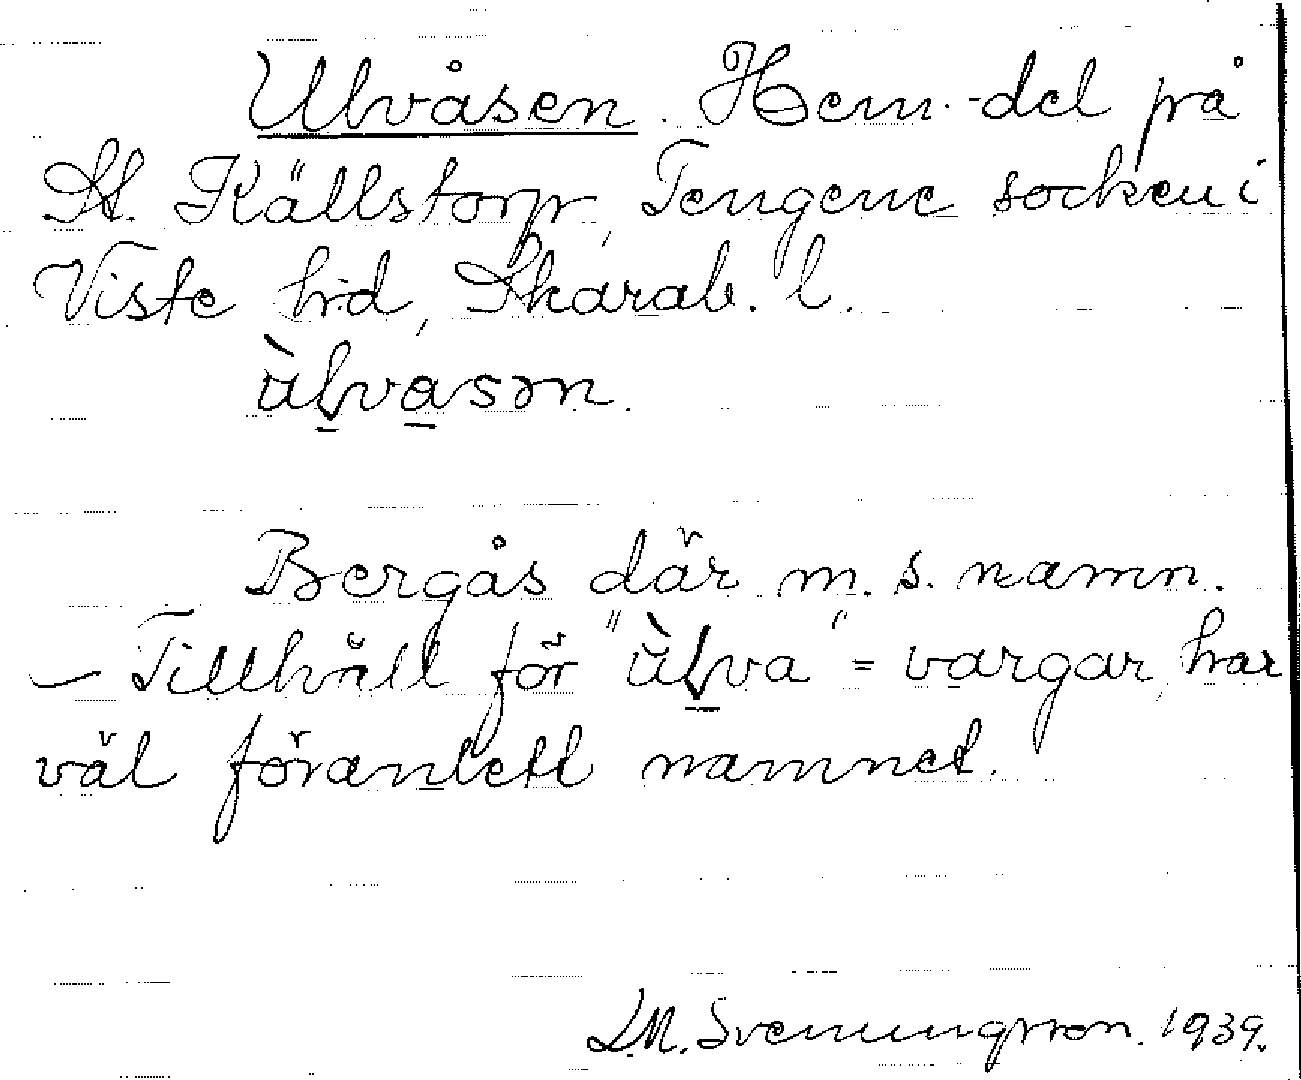 Ulvåsen. Hem.-del på
St. Källstorp, Tengene socken i
Viste hd, Skarab. l.
ùlvasən.
Bergås där m. s. namn.
— Tillhåll för "ùlva" = vargar, har
väl föranlett namnet.
L.M. Svenungsson. 1939.